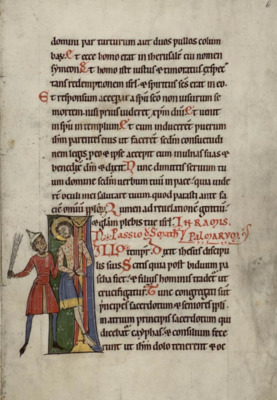 domini par turturum aut duos pullos colum
bar(um). Et ecce homo erat in iherusalē cui nomen
symeon. Et homo iste iustus & timoratus expec
tans redemptionem isrl & spiritus scs erat in eo.
Et responsum acceperat a spū sco non uisurum se
mortem nisi prius uideret xpm dñi. Et uenit
in spū in templum. Et cum inducerent puerum
ihm parentes eius ut facerent sedm consuetudi
nem legis p eo & ipse accepit eum in ulnas suas &
benedix dm & dixit. Nunc dimittis seruum tu
um domine sedm uerbum tuum in pace. quia uide
runt oculi mei salutare tuum quod parasti ante fa
ciē omniū pplor. Lumen ad reuelationē gentiū
& glam plebis tue isrl. IN RAMIS
PALMARVM
Passio
ILLO temp. Dixit ihesus discipu
lis suis Scitis quia post biduum pa
scha fiet & filius hominis tradet ut
crucifigatur. Tunc congregati sunt
principes sacerdotum & seniores ppli
in atrium principis sacerdotum qui
dicebat cayphas & consilium fece
runt ut ihm dolo tenerent & oc